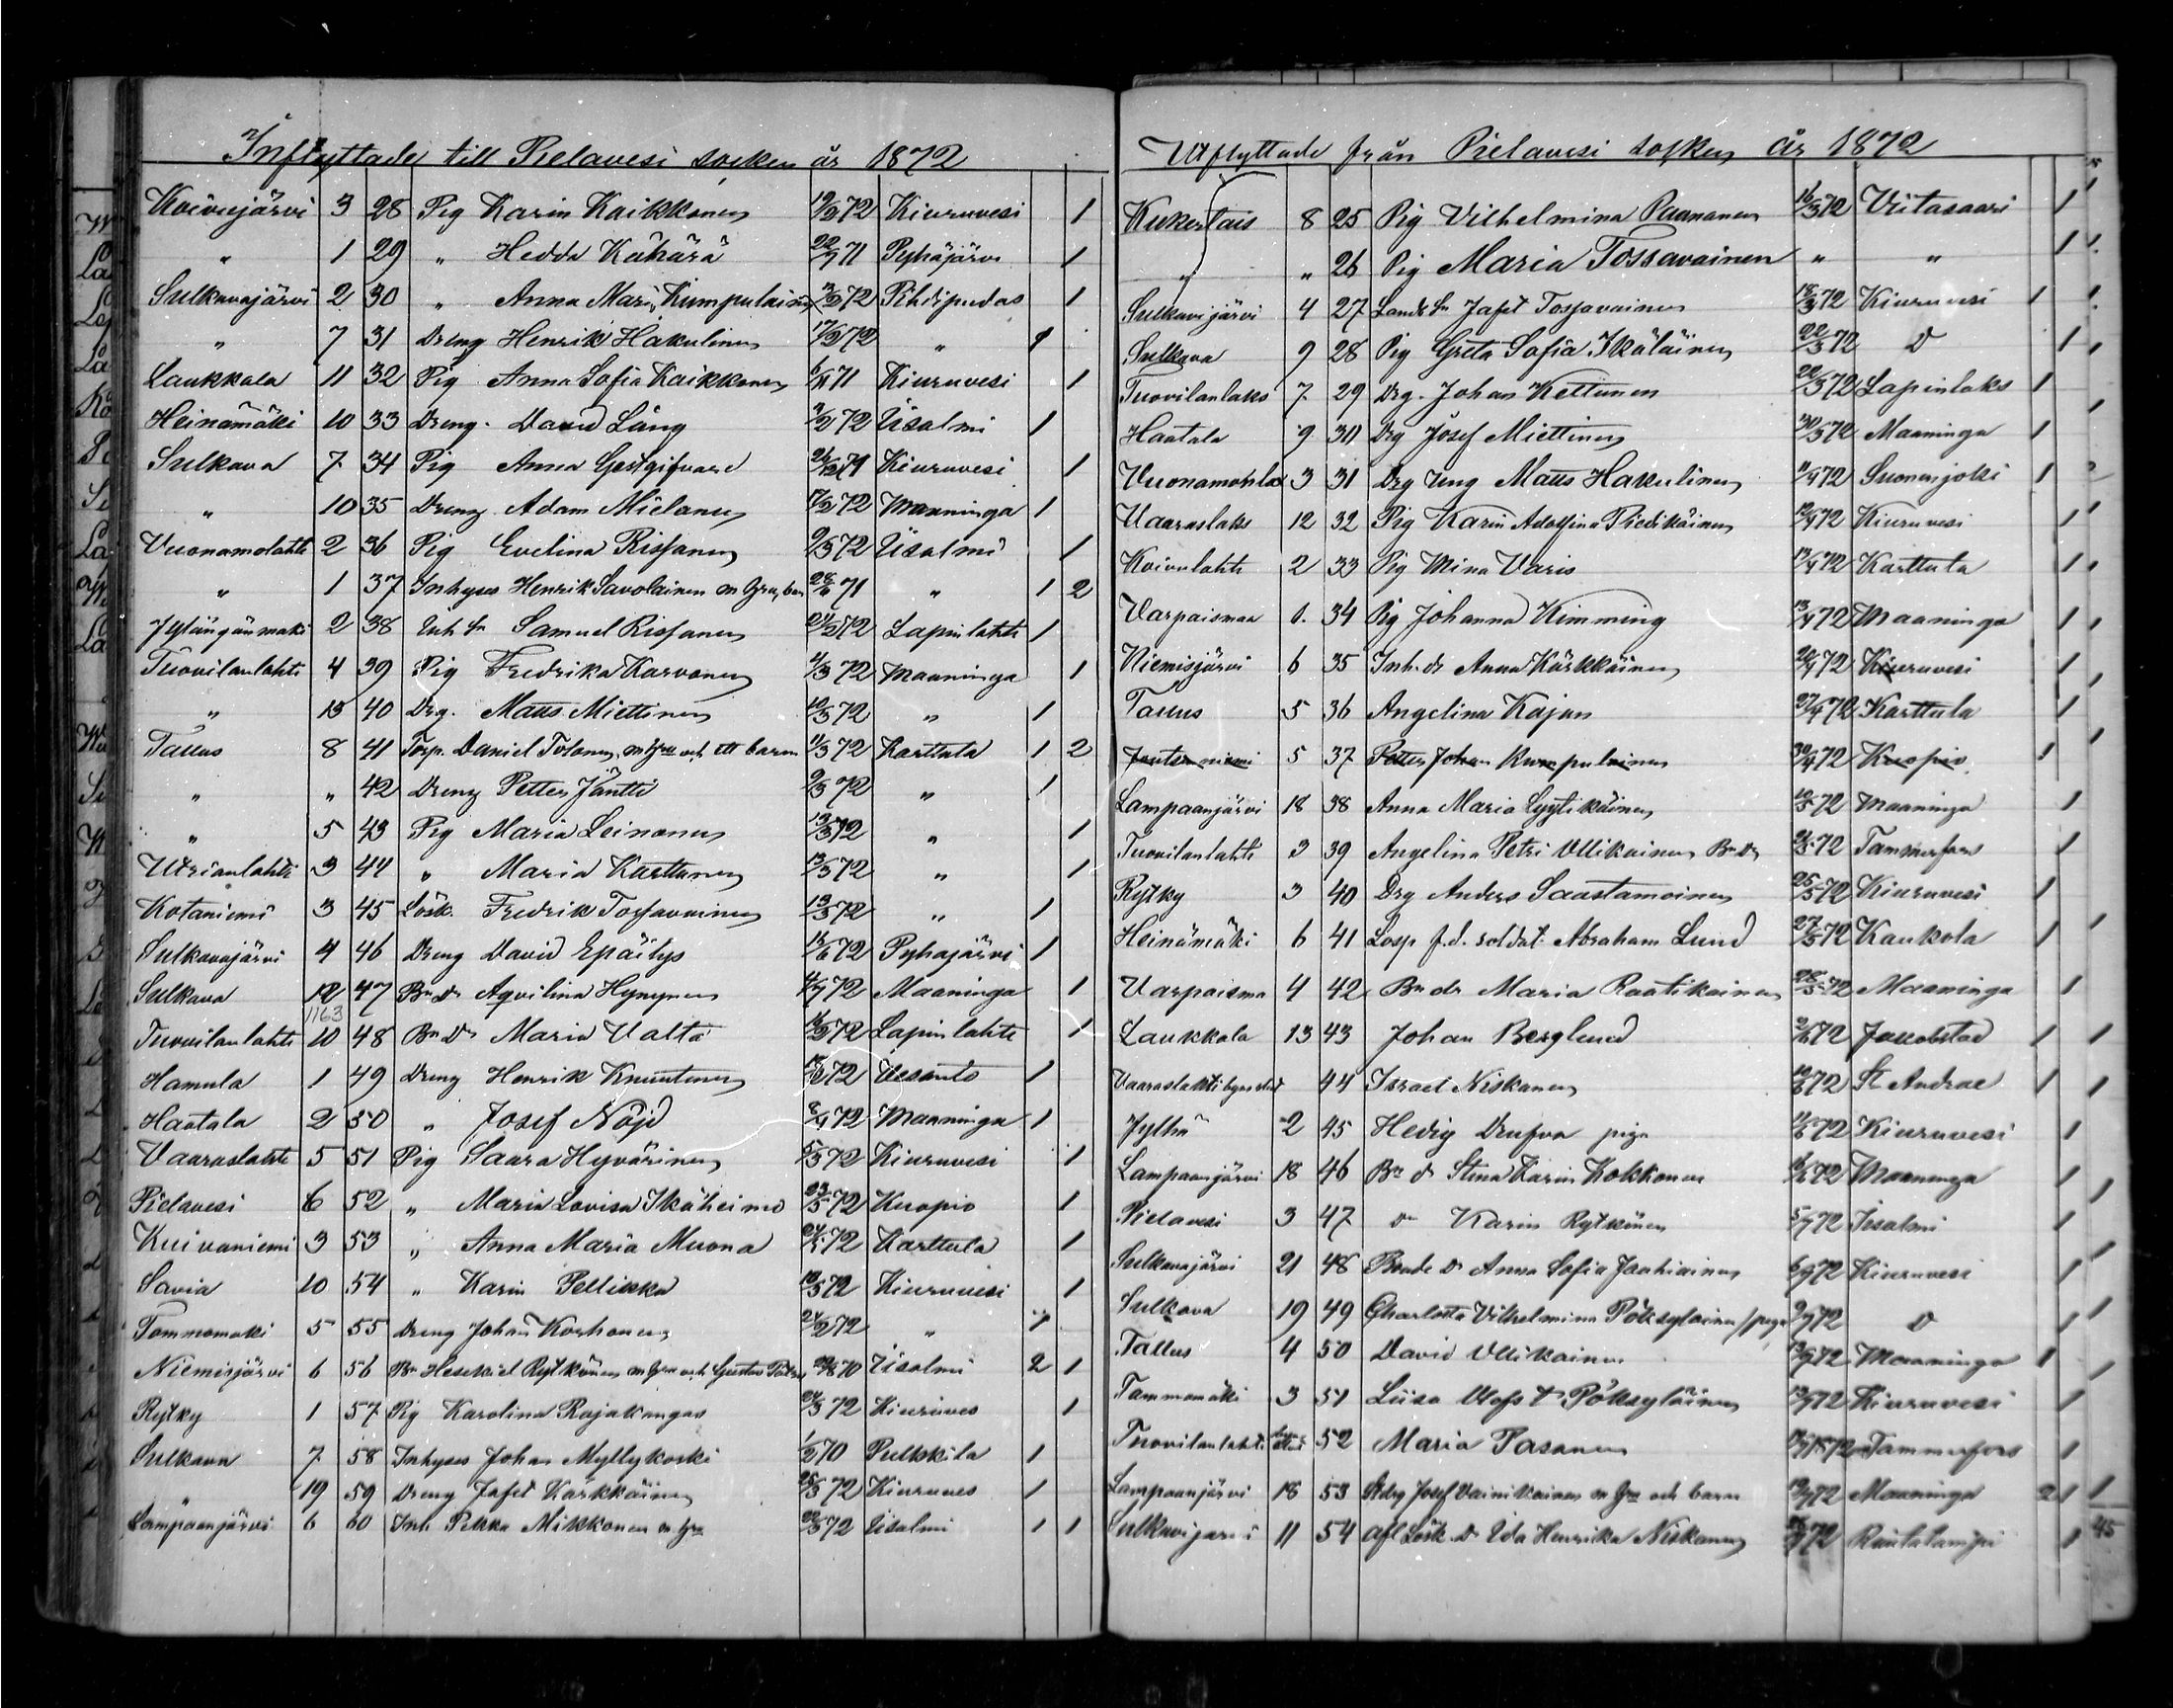 Inflyttade till Pielavesi socken år 1872
Koivujärvi 3 28 Pig Karin Kaikkonen 19/2 72 Kiuruvesi 1
" 1 29 " Hedda Kähärä 22/7 71 Pyhäjärvi 1
Sulkavajärvi 2 30 " Anna Mari Kumpulainen 72 Pihtipudas 1
" 7 31 Dreng Henrik Hakulinen 17/2 72 " 1
Laukkala 11 32 Pig Anna Sofia Kaikkonen 71 Kiuruvesi 1
Heinämäki 10 33 Dreng David Lång 72 Iisalmi 1
Sulkava 7 34 Pig Anna Gestgifvare 71 Kiuruvesi 1
" 10 35 Dreng Adam Mielonen 72 Maaninga 1
Vuonamolahti 2 36 Pig Evelina Rissanen 9/3 72 Iisalmi 1
" 1 37 Inhyses Henrik Savolainen m hru, barn 71 " 1 2
Jylängänmäki 2 38 Inh sn Samuel Rissanen 72 Lapinlahti 1
Tuovilanlahti 4 39 Pig Fredrika Karvonen 4/3 72 Maaninga 1
" 13 40 Drg. Matts Miettinen 10/3 72 " 1
Tallus 8 41 Torp. Daniel Tolonen m hru och ett barn 11/3 72 Karttula 1 2
" " 42 Dreng Petter Jäntti 9/3 72 " 1
" 5 43 Pig Maria Leinonen 13/3 72 " 1
Utrianlahti 3 44 " Maria Karttunen 13/3 72 " 1
Kotaniemi 3 45 Lösk. Fredrik Tossavainen 13/3 72 " 1
Sulkavajärvi 4 46 Dreng David Epäilys 72 Pyhäjärvi 1
Sulkava 12 47 Bn Dr Aqvilina Hynynen 72 Maaninga 1
1163
Tuovilanlahti 10 48 Bn Dr Maria Valta 72 Lapinlahti 1
Hamula 1 49 Dreng Henrik Knuutinen 72 Vesanto 1
Haatala 2 50 " Josef Nöjd 72 Maaninga 1
Vaaraslahti 5 51 Pig Saara Hyvärinen 5/3 72 Kiuruvesi 1
Pielavesi 6 52 " Maria Lovisa Ikäheimo 23/5 72 Kuopio 1
Kuivaniemi 3 53 " Anna Maria Muona 72 Karttula 1
Savia 10 54 " Karin Pellikka 72 Kiuruvesi 1
Tommomäki 5 55 Dreng Johan Korhonen 72 " 1
Niemisjärvi 6 56 Bn Hesekiel Rytkönen m hru och Gustav 70 Iisalmi 2 1
Rytky 1 57 Pig Karolina Rajakangas 24/3 72 Kiuruves 1
Sulkava 7 58 Inhyses Johan Myllykoski 70 Pulkkila 1
" 19 59 Dreng Jafet Kärkkäinen 72 Kiuruves 1
Lampaanjärvi 6 60 Inh Pekka Mikkonen m hru 72 Iisalmi 1 1
Utflyttade från Pielavesi socken år 1872
8 25 Pig Vilhelmina Paananen 16/3 72 Viitasaari 1
" " 26 Pig Maria Tossavainen " " 1
Sulkavajärvi 4 27 Landb. sn Jafet Tossavainen 18/3 72 Kiuruvesi 1
Sulkava 9 28 Pig Greta Sofia Ikäläinen 22/3 72 D 1
Tuovilanlaks 7 29 Drg. Johan Kettunen 22/3 72 Lapinlaks 1
Haatala 9 30 Drg Josef Miettinen 30/3 72 Maaninga 1
3 31 Drg Ung Matts Hakulinen 11/4 72 Suonenjoki 1
Vaaraslaks 12 32 Pig Karin Adolfina Piedikäinen 12/4 72 Kiuruvesi 1
Koivulahti 2 33 Pig Mina Varis 13/4 72 Karttula 1
Varpaismaa 1. 34 Pig Johanna Kimming 13/4 72 Maaninga 1
Niemisjärvi 6 35 Inh. dr Anna Kärkkäinen 20/4 72 Kiuruvesi 1
Tallus 5 36 Angelina Kajan 27/4 72 Karttula 1
Joutsenniemi 5 37 Petter Johan Kumpulainen 30/4 72 Kuopio 1
Lampaanjärvi 18 38 Anna Maria Lyytikäinen 10/5 72 Maaninga 1
Tuovilanlahti 3 39 Angelina Petri Ullikainen Bn Dr 72 Tammerfors 1
Rytky 3 40 Drg Anders Saastamoinen 25/5 72 Kiuruvesi 1
Heinämäki 6 41 Losp f.d. soldat Abraham Lund 27/5 72 Kaukola 1
Varpaisma 4 42 Bn dr Maria Raatikainen 28/5 72 Maaninga 1
Laukkala 13 43 Johan Berglund 72 Jacobstad 1
44 Israel Niskanen 72 St Andrae 1
Jylhä 2 45 Hedvig Drufva piga 72 Kiuruvesi 1
Lampaanjärvi 18 46 Bn dr Stina Karin Kokkonen 72 Maaninga 1
Pielavesi 3 47 Dr Karin Rytkönen 5/7 72 Iisalmi 1
Sulkavajärvi 21 48 Bonde Dr Anna Sofia Jauhiainen 72 Kiuruvesi 1
Sulkava 19 49 Charlotta Vilhelmina Pöksyläinen /piga 72 D 1
Tallus 4 50 David Ullikainen 72 Maaninga 1
Tammamäki 3 51 Liisa Olofs dr Pöksyläinen 72 Kiuruvesi 1
Tuovilanlahti 52 Maria Pasanen 72 Tammerfors 1
Lampaanjärvi 18 53 Josef Vainikainen m hru och barn 72 Maaninga 2 1
Sulkavajärvi 11 54 Afl Lösk Dr Ida Henrika Niskanen 72 Rautalampi 1
45